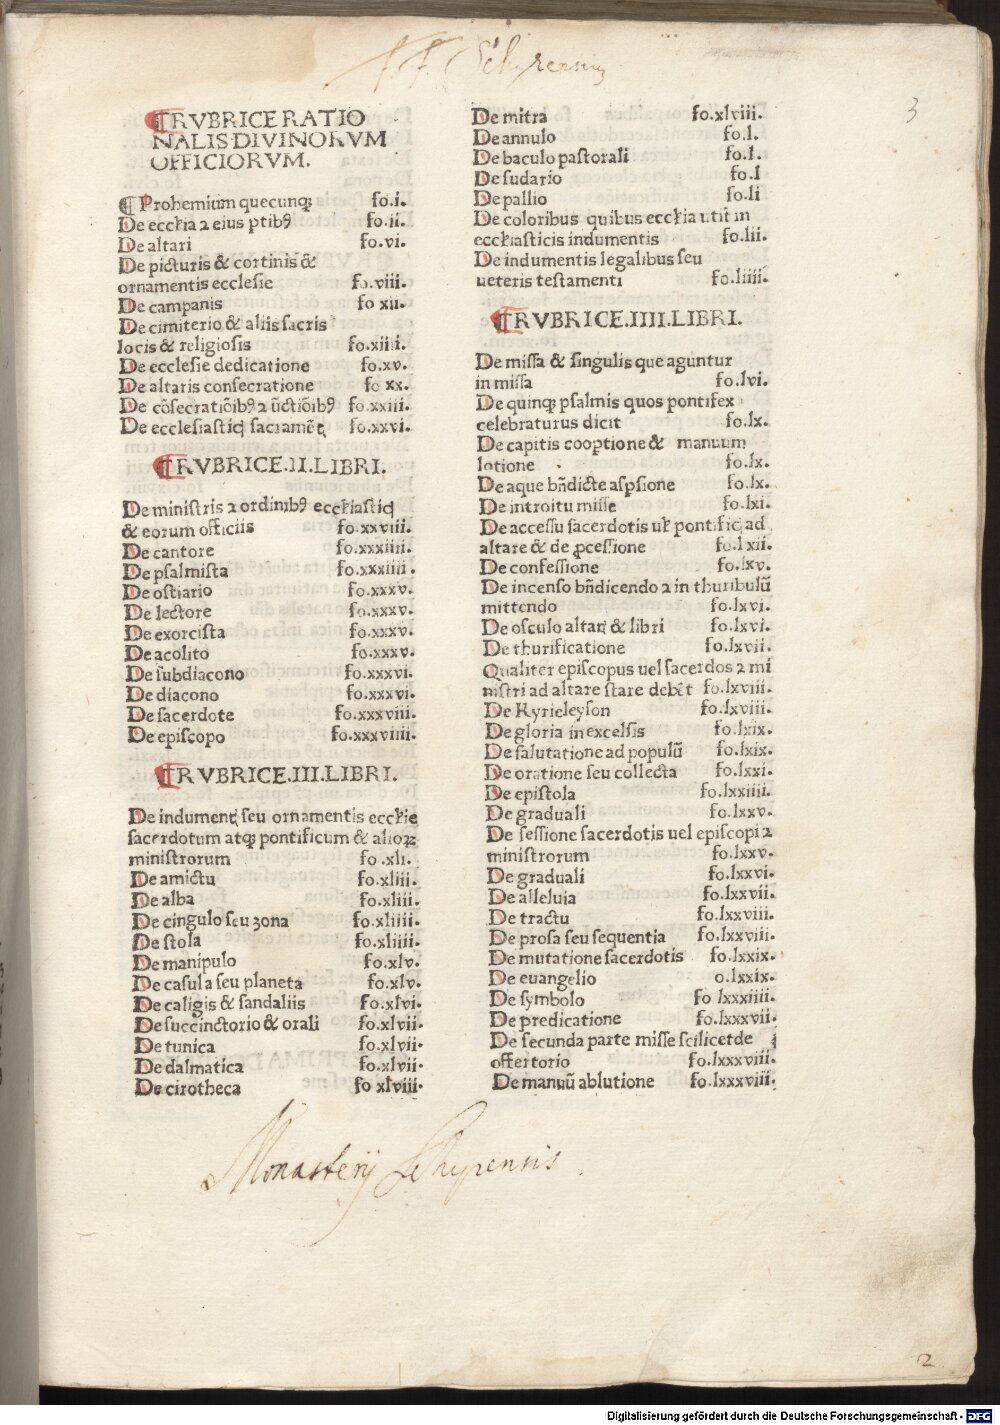 Schyrensis
3
¶RVBRICE RATIO
NALIS DIVINORVM
OFFICIORVM.
¶ Prohemium quecunqꝫ fo.i.
De eccƚia ⁊ eius ꝑtibꝰ fo.ii.
De altari fo.vi.
De picturis & cortinis &
ornamentis ecclesie fo.viii.
De campanis fo xii.
De cimiterio & aliis sacris
locis & religiosis fo.xiiii.
De ecclesie dedicatione fo.xv.
De altaris consecratione fo xx.
De cōsecratiōibꝰ ⁊ ūctiōibꝰ fo.xxiii.
De ecclesiasticꝭ sacramētꝭ fo.xxvi.
¶RVBRICE.II.LIBRI.
De ministris ⁊ ordinibꝰ eccƚiasticꝭ
& eorum officiis fo.xxviii.
De cantore fo.xxxiiii.
De psalmista fo.xxxiiii.
De ostiario fo.xxxv.
De lectore fo.xxxv.
De exorcista fo.xxxv.
De acolito fo.xxxv.
De subdiacono fo.xxxvi.
De diacono fo.xxxvi.
De sacerdote fo.xxxviii.
De episcopo fo.xxxviiii.
¶RVBRICE.III.LIBRI.
De indumentꝭ seu ornamentis eccƚie
sacerdotum atqꝫ pontificum & alioꝝ
ministrorum fo.xli.
De amictu fo.xliii.
De alba fo.xliii.
De cingulo seu zona fo.xliiii.
De stola fo.xliiii.
De manipulo fo.xlv.
De casula seu planeta fo.xlv.
De caligis & sandaliis fo.xlvi.
De succinctorio & orali fo.xlvii.
De tunica fo.xlvii.
De dalmatica fo.xlvii.
De cirotheca fo xlviii.
De mitra fo.xlviii.
De annulo fo.l.
De baculo pastorali fo.l.
De sudario fo.l
De pallio fo.li
De coloribus quibus eccƚia utit in
ecclƚiasticis indumentis fo.lii.
De indumentis legalibus seu
ueteris testamenti fo.liiii.
¶RVBRICE.IIII.LIBRI.
De missa & singulis que aguntur
in missa fo.lvi.
De quinqꝫ psalmis quos pontifex
celebraturus dicit fo.lx.
De capitis cooptione & manuum
lotione fo.lx.
De aque bn̄dicte aspsione fo.lx.
De introitu misse fo.lxi.
De accessu sacerdotis uƚ pontificꝭ ad
altare & de ꝓcessione fo.lxii.
De confessione fo.lxv.
De incenso bn̄dicendo ⁊ in thuribulū
mittendo fo.lxvi.
De osculo altarꝭ & libri fo.lxvi.
De thurificatione fo.lxvii.
Qualiter episcopus uel sacerdos ⁊ mi
nistri ad altare stare debēt fo.lxviii.
De Kyrieleyson fo.lxviii.
De gloria in excelsis fo.lxix.
De salutatione ad populū fo.lxix.
De oratione seu collecta fo.lxxi.
De epistola fo.lxxiiii.
De graduali fo.lxxv.
De sessione sacerdotis uel episcopi ⁊
ministrorum fo.lxxv.
De graduali fo.lxxvi.
De alleluia fo.lxxvii.
De tractu fo.lxxviii.
De prosa seu sequentia fo.lxxviii.
De mutatione sacerdotis fo.lxxix.
De euangelio o.lxxix.
De symbolo fo lxxxiiii.
De predicatione fo.lxxxvii.
De secunda parte misse scilicet de
offertorio fo.lxxxviii.
De manuū ablutione fo.lxxxviii.
Monasterij Schyrensis
2
Digitalisierung gefördert durch die Deutsche Forschungsgemeinschaft - DFG